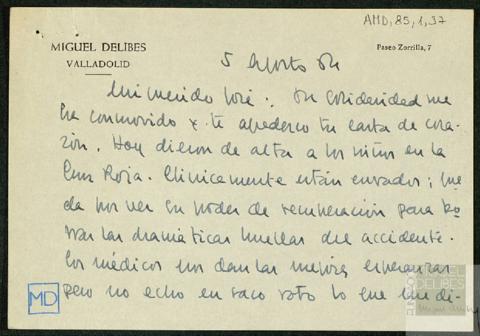 AMD, 85, 1, 37
MIGUEL DELIBES
VALLADOLID
Paseo Zorrilla, 7
5 agosto 84
Mi querido José: Tu solidaridad me
ha conmovido y te agradezco tu carta de cora-
zón. Hoy dieron de alta a los niños en la
Cruz Roja. Clínicamente están curados; que
da por ver su poder de recuperación para bo
rrar las dramáticas huellas del accidente.
Los médicos nos dan las mejores esperanzas
pero no echo en saco roto lo que me di-
MD
MIGUEL
DELIBES